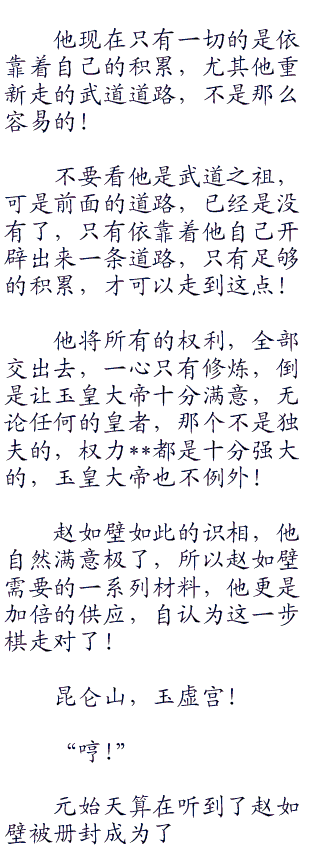 他现在只有一切的是依
靠着自己的积累，尤其他重
新走的武道道路，不是那么
容易的！
不要看他是武道之祖，
可是前面的道路，已经是没
有了，只有依靠着他自己开
辟出来一条道路，只有足够
的积累，才可以走到这点！
他将所有的权利，全部
交出去，一心只有修炼，倒
是让玉皇大帝十分满意，无
论任何的皇者，那个不是独
夫的，权力**都是十分强大
的，玉皇大帝也不例外！
赵如壁如此的识相，他
自然满意极了，所以赵如壁
需要的一系列材料，他更是
加倍的供应，自认为这一步
棋走对了！
昆仑山，玉虚宫！
“哼！”
元始天算在听到了赵如
壁被册封成为了